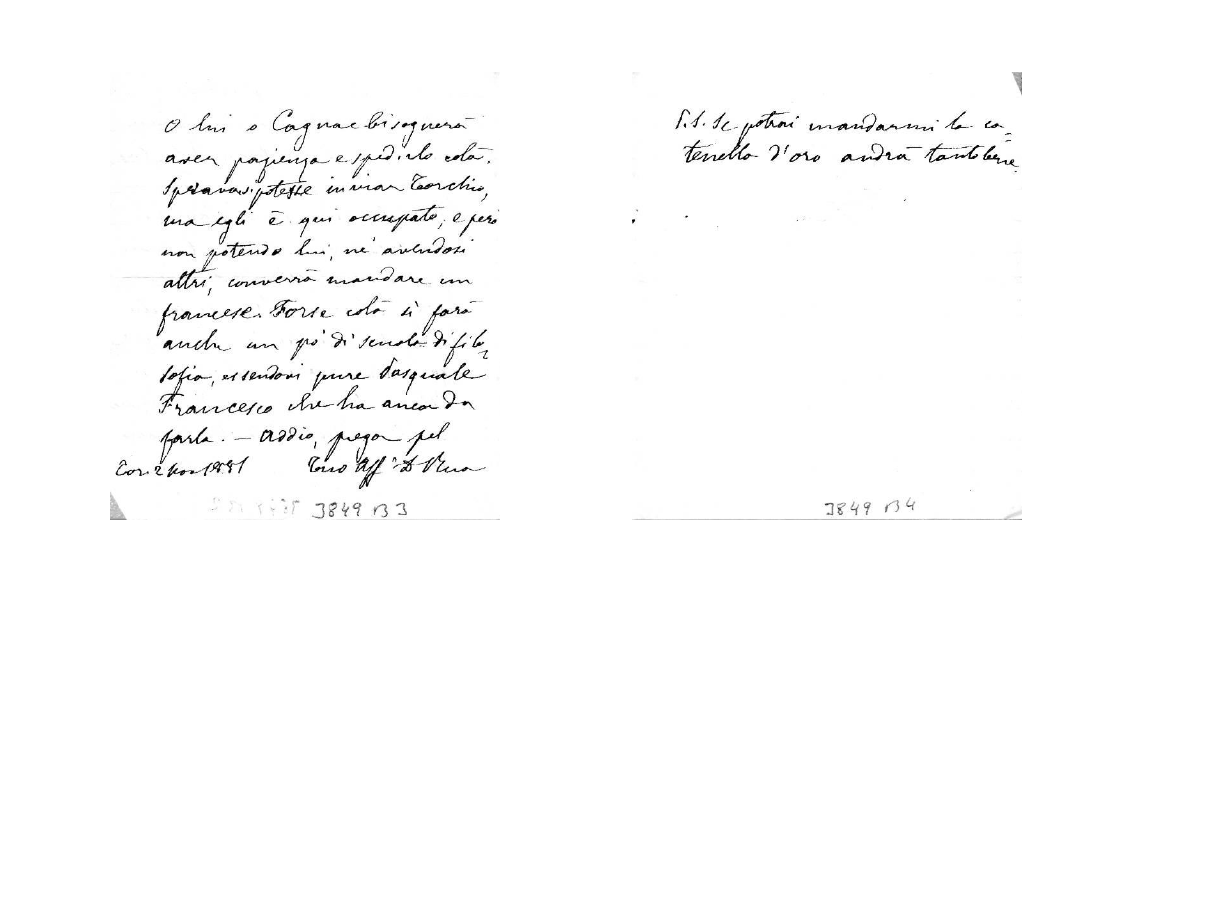 O lui o Cagnac bisognerà
aver pazienza e spedirlo colà.
Speravasi potesse inviar Torchio,
ma egli è qui occupato, e però
non potendo lui, nè avendosi
altri, converrà mandare un
francese. Forse colà si farà
anche un po' di scuola di filo=
sofia, essendovi pure Pasquale
Francesco che ha ancor da
farla. — Addio, prega pel
Tor. 2 Nov 1881 Tuo Aff° D Rua
3849 B 3
P.S. Se potrai mandarmi la ca=
tenella d'oro andrà tanto bene
3849 B 4